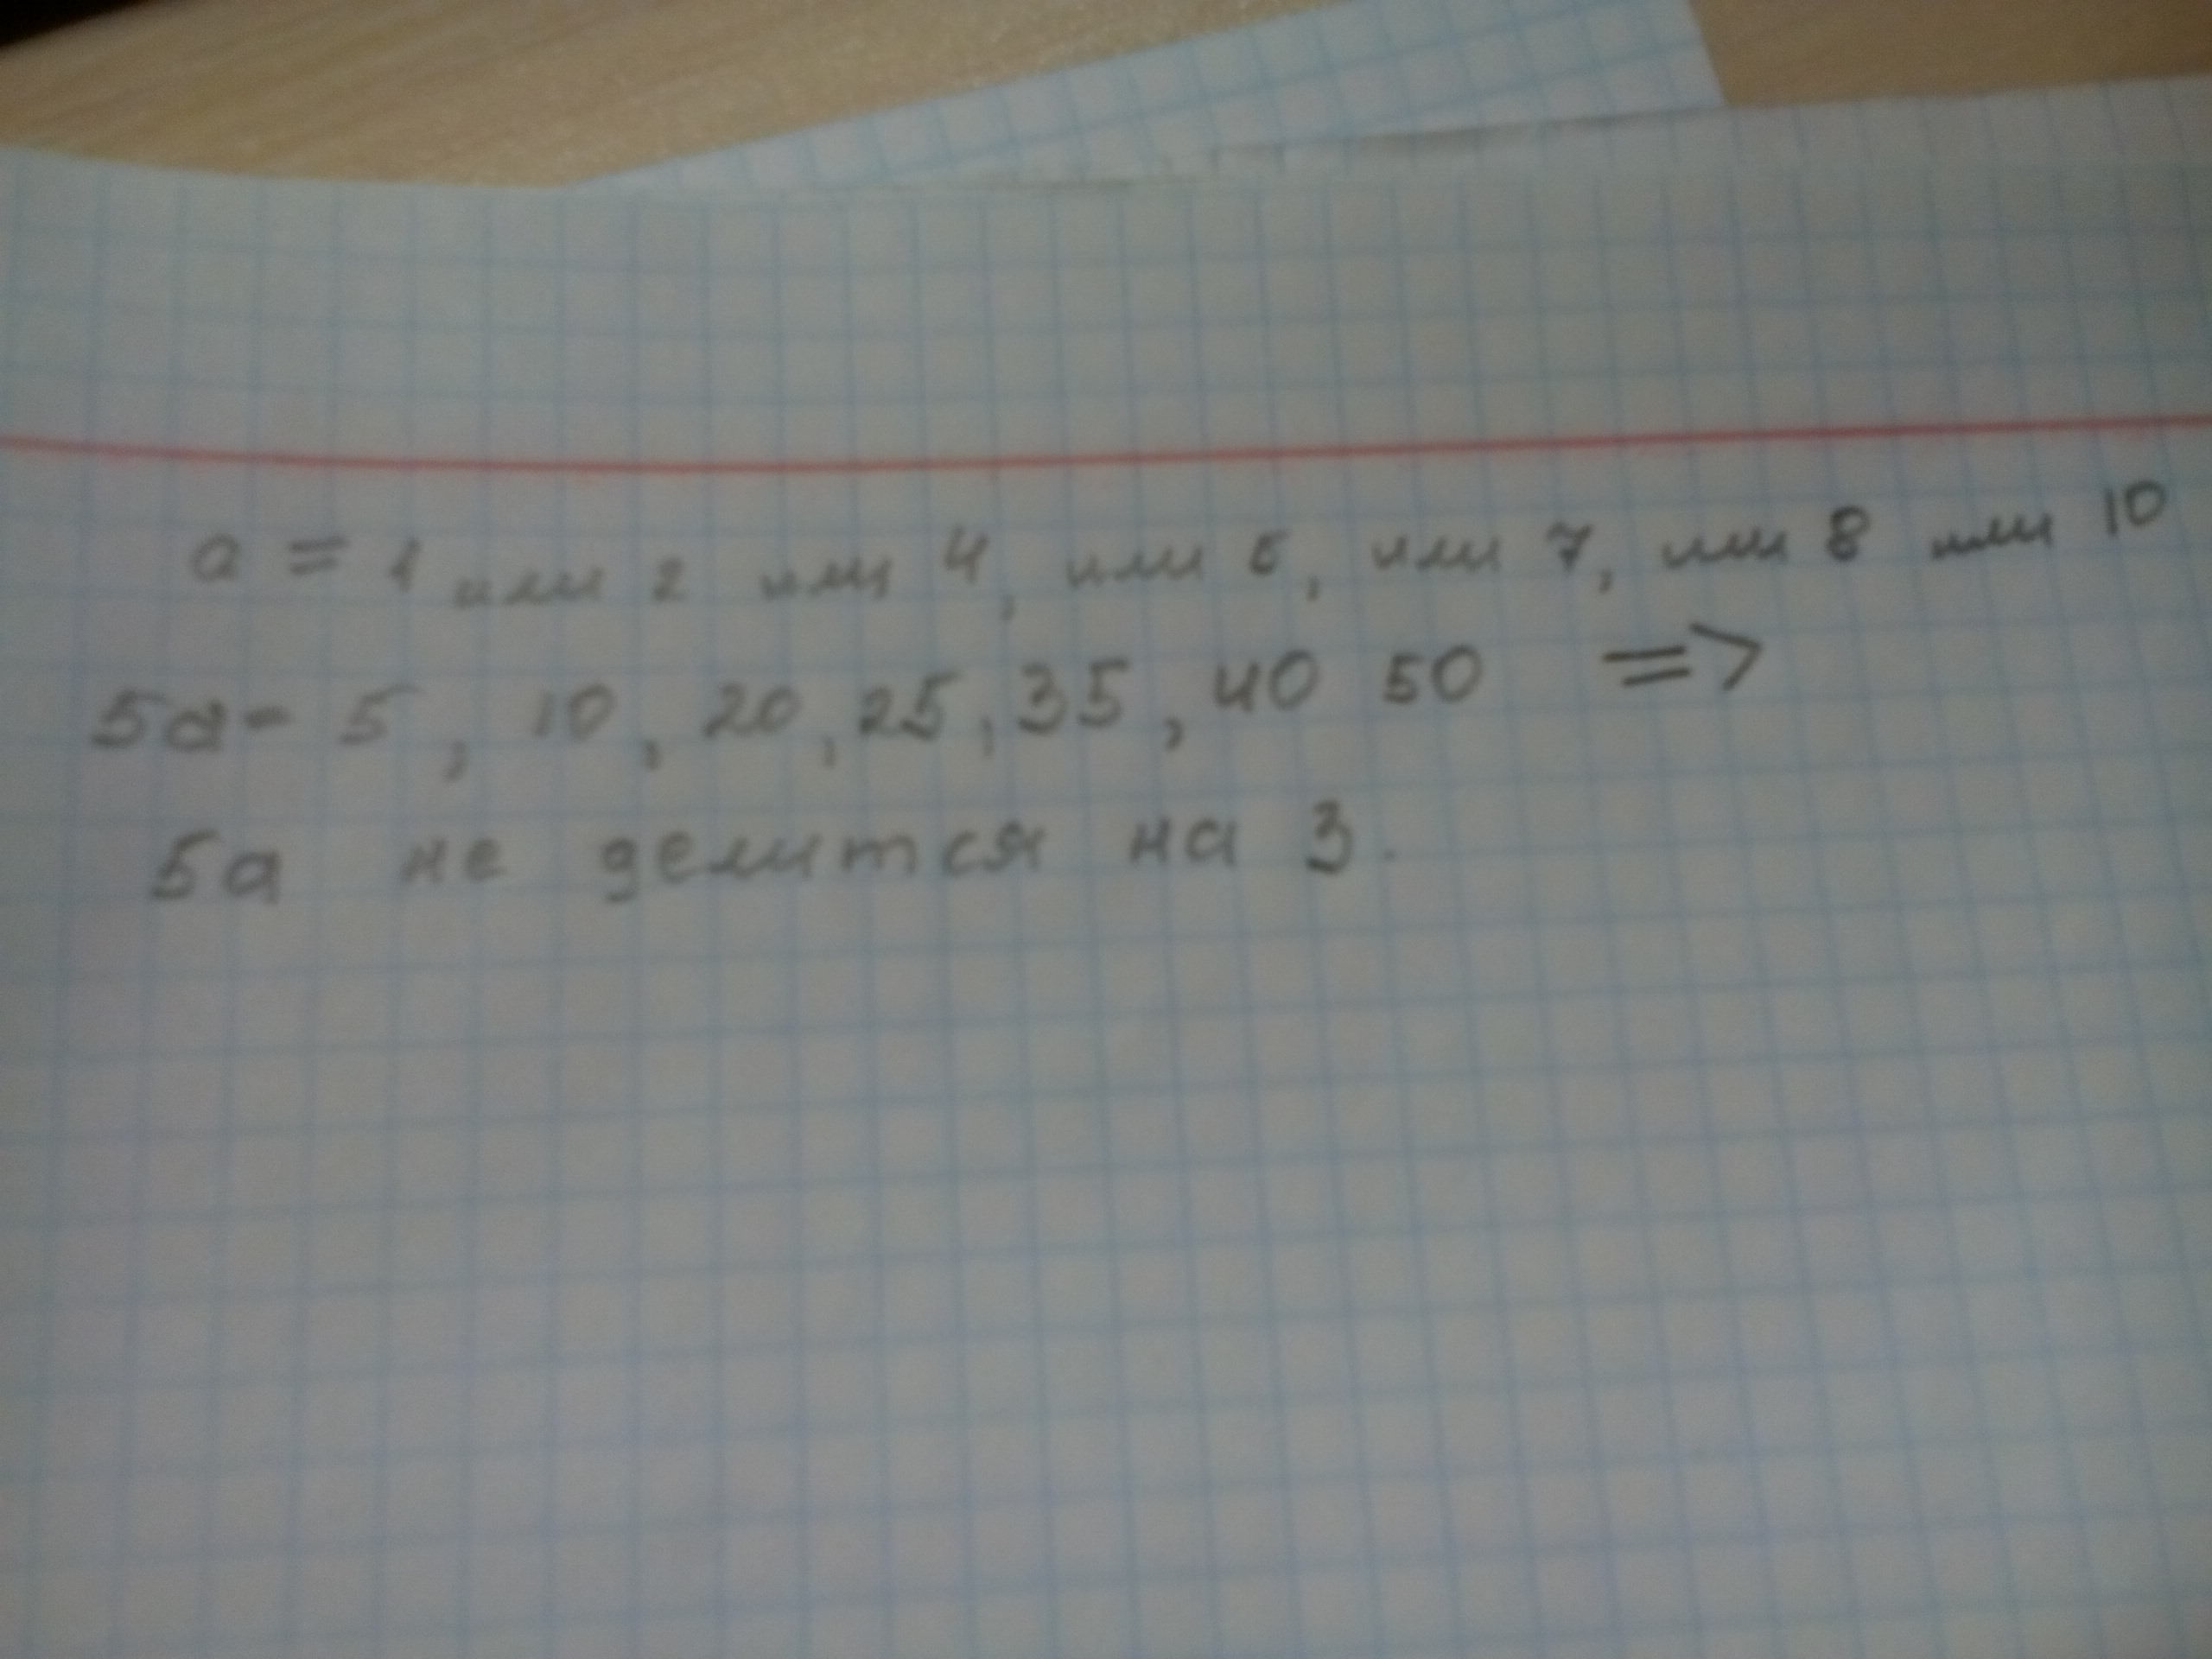 a = 1 или 2 или 4, или 5, или 7, или 8 или 10
5a - 5, 10, 20, 25, 35, 40 50 =>
5a не делится на 3.